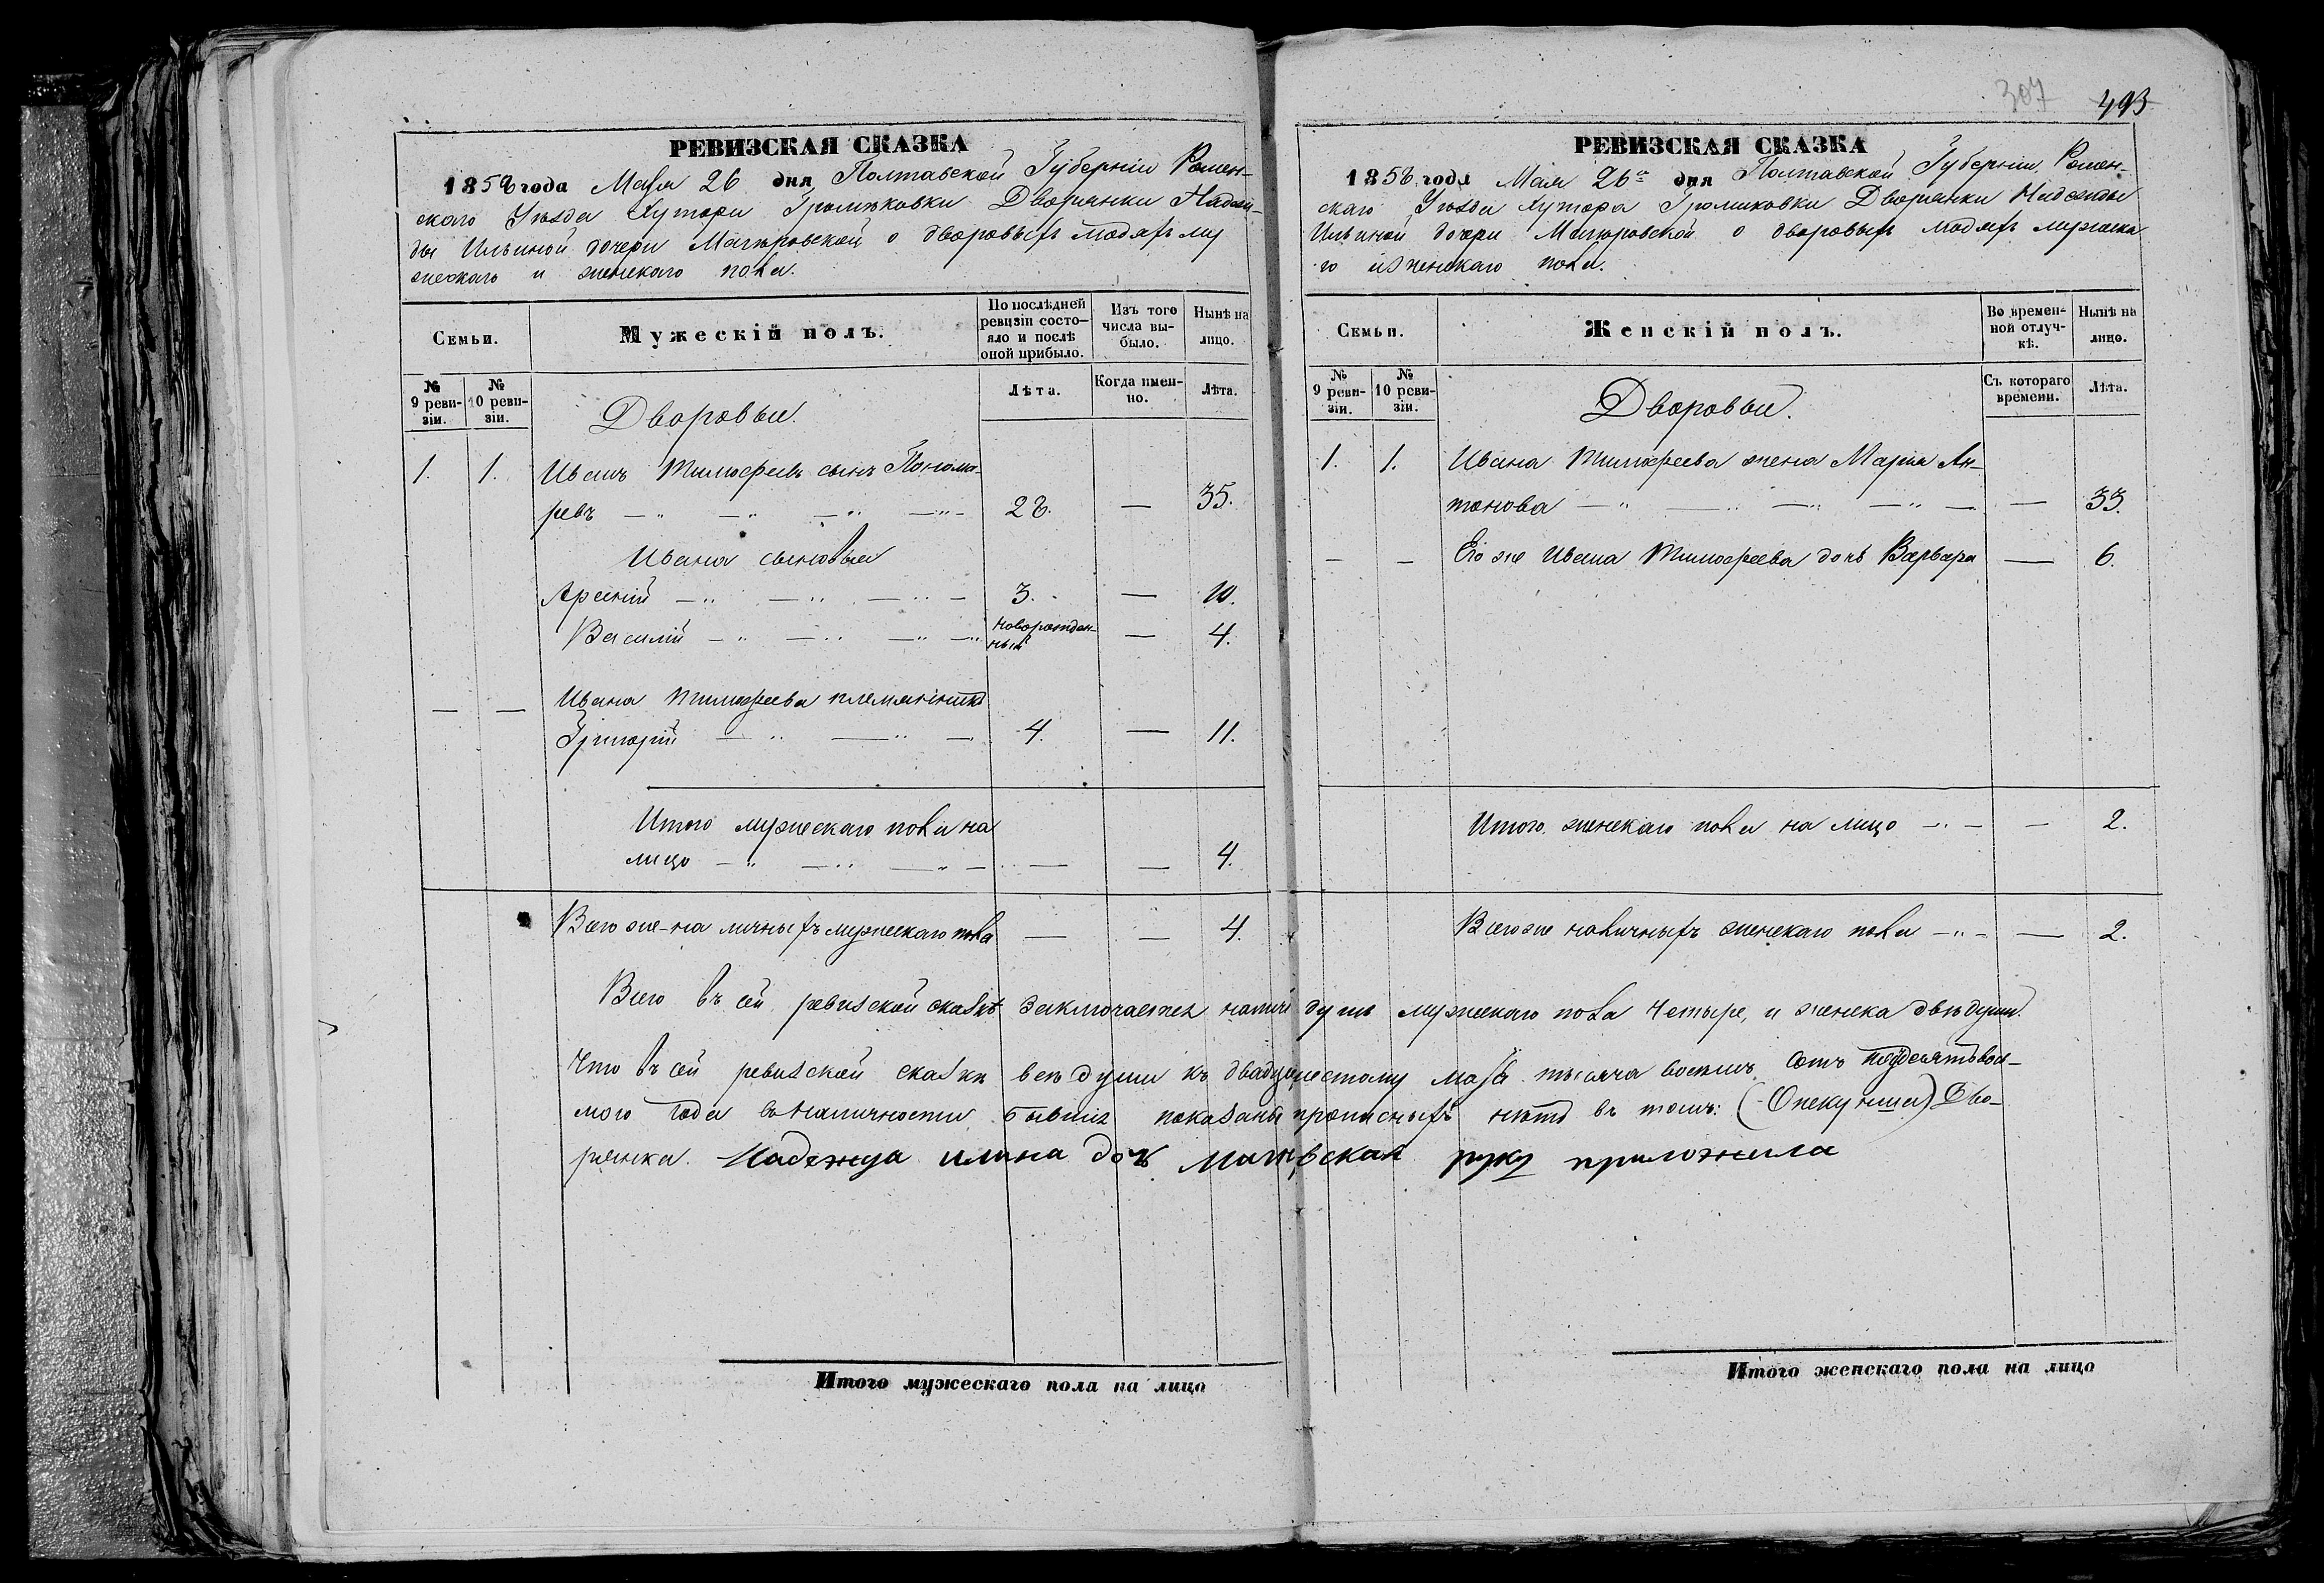 307 493
РЕВИЗСКАЯ СКАЗКА
1858 года Мая 26 дня Полтавской Губерніи Ромен-
скаго Уѣзда Хутора Громѣковки Дворянки Надеж-
ды Ильиной дочери Мачюровской о дворовыхъ людяхъ му
жескаго и женскаго пола.
Семьи.
Мужескій полъ.
По послѣдней
ревизіи состо-
яло и послѣ
оной прибыло.
Изъ того
числа вы-
было.
Нынѣ на
лицо.
№
9 реви-
зіи.
№
10 реви-
зіи.
Лѣта.
Когда имен-
но.
Лѣта.
Дворовыи.
1. 1. Иванъ Тимофеевъ сынъ Понома-
ревъ 28. — 35.
Ивана сыновья
Арсеній 3. — 10.
Василій новорожден-
ный — 4.
— — Ивана Тимофеева племянникъ
Григорій 4. — 11.
Итого мужескаго пола на
лицо — — 4.
Всего же на личныхъ мужескаго пола — — 4.
РЕВИЗСКАЯ СКАЗКА
1858 года Мая 26го дня Полтавской Губерніи Ромен-
скаго Уѣзда Хутора Громиковки Дворянки Надежды
Ильиной дочери Мачюровской о дворовыхъ людяхъ мужеска
го и женскаго пола.
Семьи.
Женскій полъ.
Во времен-
ной отлуч-
кѣ.
Нынѣ на
лицо.
№
9 реви-
зіи.
№
10 реви-
зіи.
Съ котораго
времени.
Лѣта.
Дворовыи.
1. 1. Ивана Тимофеева жена Марія Ан-
тонова — 33.
— — Его же Ивана Тимофеева дочь Варвара — 6.
Итого женскаго пола на лицо — 2.
Всего же наличныхъ женскаго пола — 2.
Всего въ сей ревизской сказкѣ заключается налич душъ мужескаго пола четыре, и женска двѣ души.
Что въ сей ревизской сказкѣ всѣ души къ двадцешестому мая тысяча восемь сотъ пядесятъ вось-
мого года въ наличности бывшіе показаны прописныхъ нѣтъ въ томъ: (Опекунша) Дво-
рянка. Надежда илина доч руку приложила
Итого мужескаго пола на лицо
Итого женскаго пола на лицо